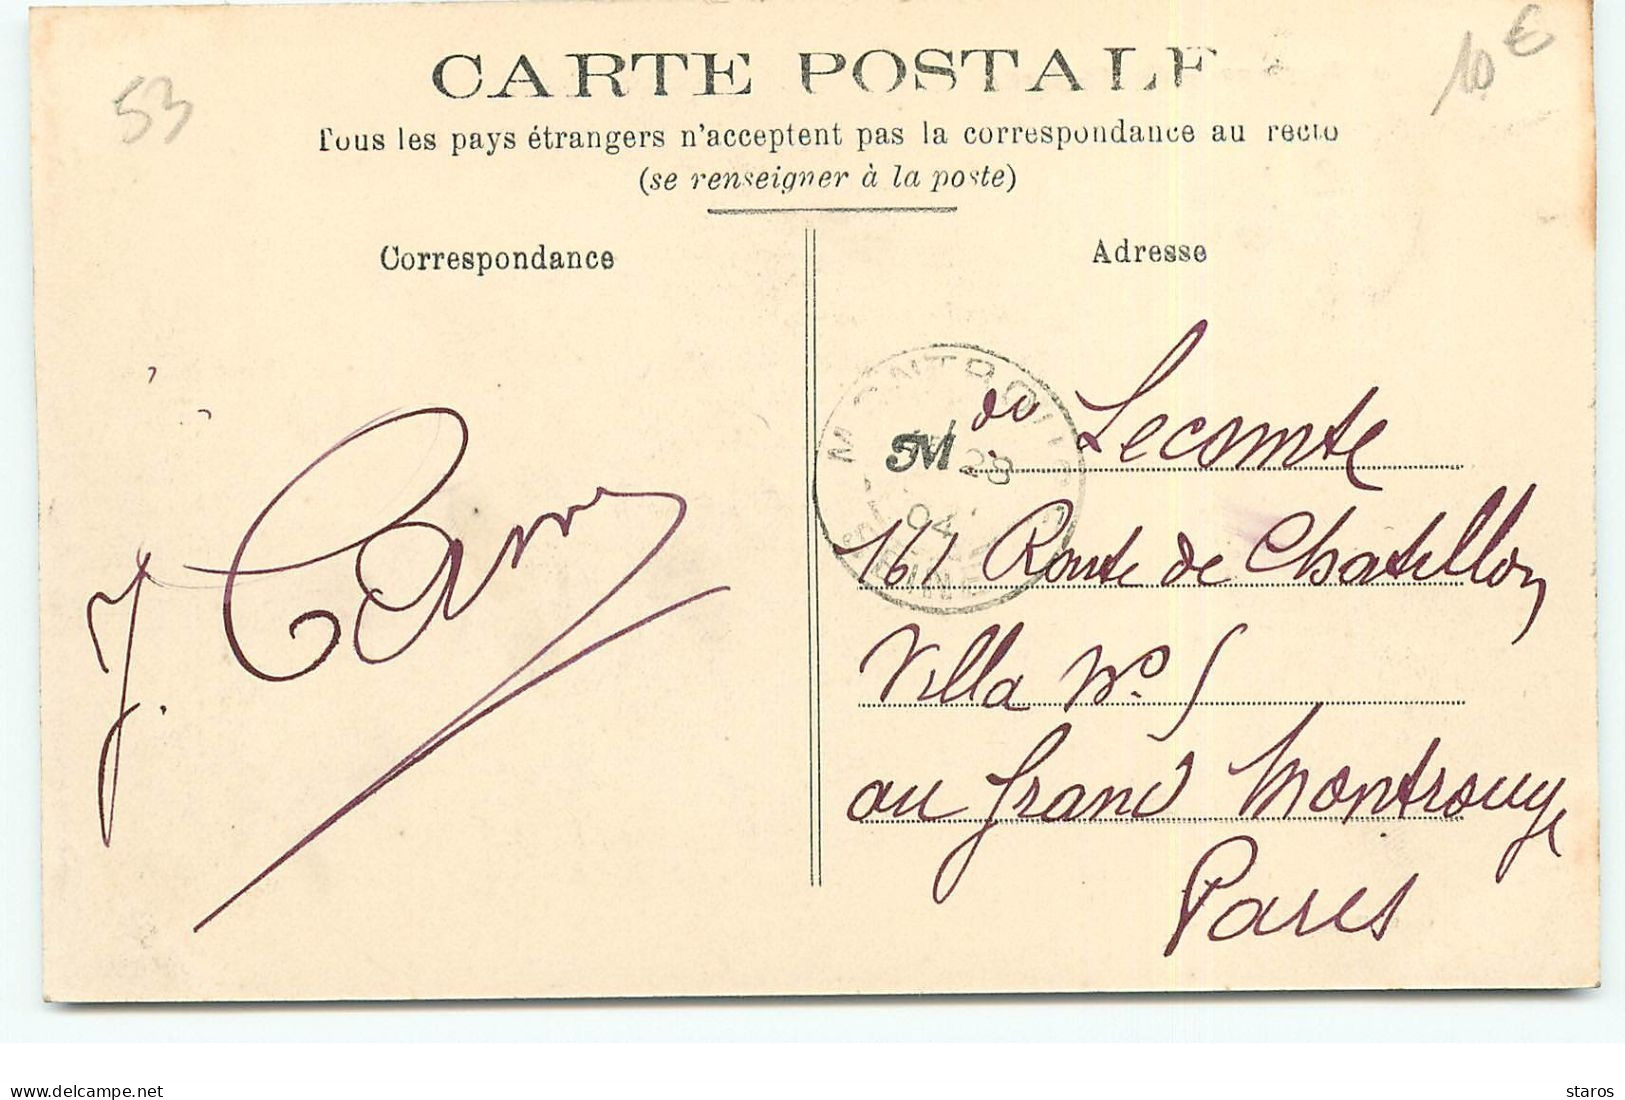 53
10 €
CARTE POSTALE
Tous les pays étrangers n'acceptent pas la correspondance au recto
(se renseigner à la poste)
Correspondance
Adresse
MONTROUGE
28
04
SEINE
M Lecomte
161 Route de Chatillon
Villa No. 5
au Grand Montrouge
Paris
J.
delcampe.net
staros